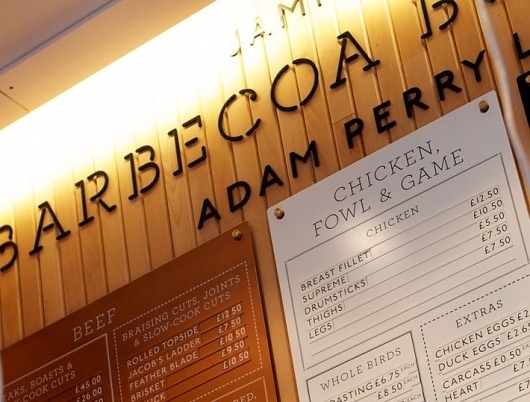 JAMI
BARBECOA B
ADAM PERRY L
CHICKEN,
FOWL & GAME
CHICKEN
BREAST FILLET £12.50
SUPREME £10.50
DRUMSTICKS £5.50
THIGHS £7.50
LEGS £7.50
WHOLE BIRDS
ROASTING £6.75 EACH
£8.50
EXTRAS
CHICKEN EGGS £2
DUCK EGGS £2.6
CARCASS £0.50
HEART £7.
BEEF
BRAISING CUTS, JOINTS
& SLOW-COOK CUTS
ROLLED TOPSIDE £12.50
JACOB'S LADDER £7.50
FEATHER BLADE £10.50
BRISKET £9.50
£10.50
AKS, ROASTS &
OOK CUTS
£45.00
£26.00